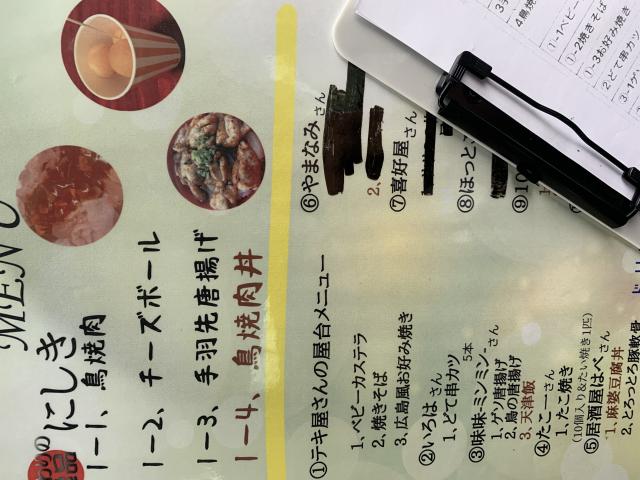 MENU
にしき
1-1、鳥焼肉
1-2、チーズボール
1-3、手羽先唐揚げ
1-4、鳥焼肉丼
①テキ屋さんの屋台メニュー
1、ベビーカステラ
2、焼きそば
3、広島風お好み焼き
②いろはさん
1、どて串カツ 5本
③味味・ミンミンさん
1、ゲソ唐揚げ
2、鳥の唐揚げ
3、天津飯
④たこ一さん
1、たこ焼き
(10個入り&たい焼き1匹)
⑤居酒屋はべさん
1、麻婆豆腐丼
2、とろっとろ豚軟骨
⑥やまなみさん
2、
⑦喜好屋さん
⑧ほっと
⑨10
4鳥焼
1-1ベビー
1-2焼きそば
1-3お好み焼き
2どて串カツ
3-1ゲソ